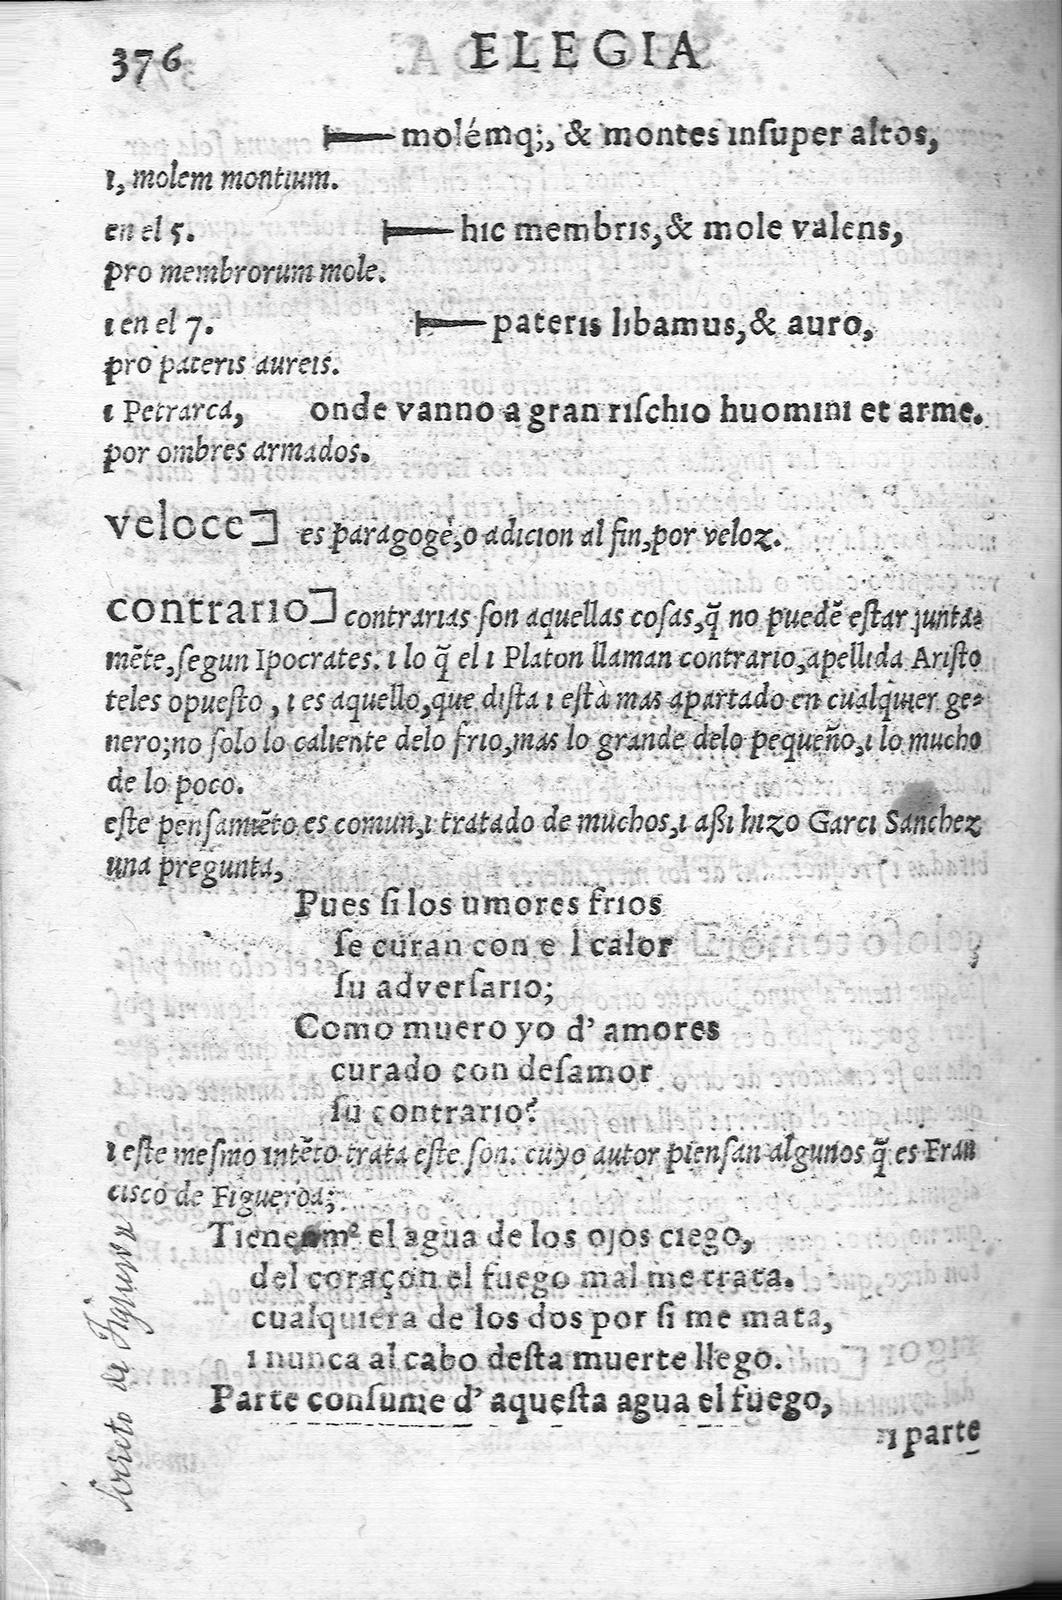 376 ELEGIA
molémq;, & montes insuper altos,
ı, molem montıum.
en el 5. hıc membrıs, & mole valens,
pro membrorum mole.
ı en el 7. paterıs lıbamus, & auro,
pro paterıs aureıs.
ı Petrarca, onde vanno a gran rıſchıo huomını et arme.
por ombres armados.
veloce] es paragoge, o adıcıon al fin, por veloz.
contrarıo] contrarıas ſon aquellas coſas, q̃ no puedẽ eſtar junta-
mẽte, ſegun Ipocrates. ı lo q̃ el ı Platon llaman contrarıo, apellıda Arıſto
teles opueſto, ı es aquello, que dıſta ı eſtà mas apartado en cualquıer ge-
nero; no ſolo lo calıente delo frıo, mas lo grande delo pequeño, ı lo mucho
de lo poco.
eſte penſamıẽto es comun, ı tratado de muchos, ı aßı hızo Garcı Sanchez
una pregunta,
Pues ſi los umores frıos
ſe curan con e l calor
ſu adverſarıo;
Como muero yo d' amores
curado con deſamor
ſu contrarıo?
ı eſte meſmo ıntẽto trata eſte ſon. cuyo autor pıenſan algunos q̃ es Fran
cısco de Fıgueroa;
Tıene me el agua de los ojos cıego,
del coraçon el fuego mal me trata.
cualquıera de los dos por ſi me mata,
ı nunca al cabo deſta muerte llego.
Parte conſume d' aqueſta agua el fuego,
ı parte
de Figueroa